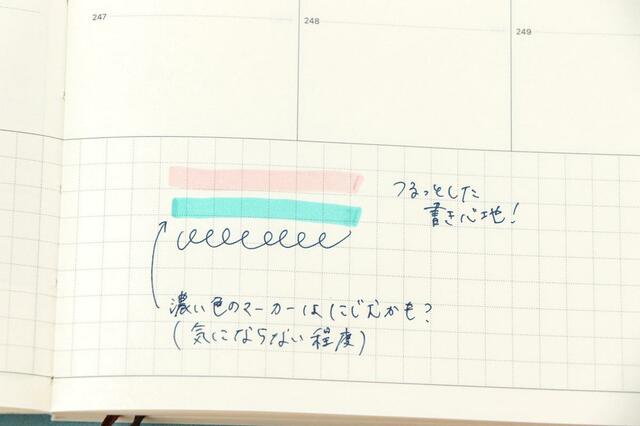 247
248
249
つるっとした
書き心地！
濃い色のマーカーはにじむかも？
(気にならない程度)